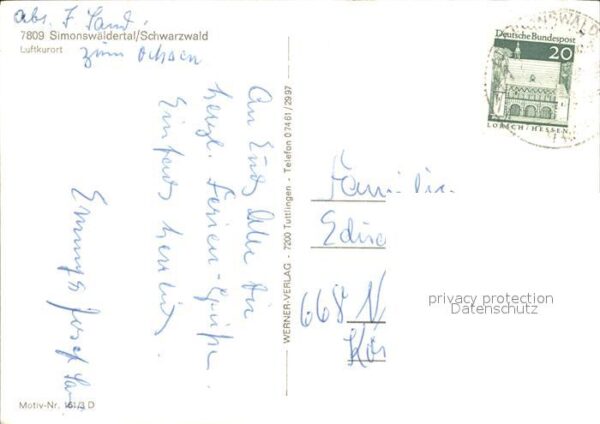 abs. J. Sand.
7809 Simonswäldertal/Schwarzwald
Luftkurort
zum Ochsen
An Euch Alle die
herzl. Ferien-Grüße.
Einfach herrlich.
Emmy & Josef
WERNER-VERLAG - 7200 Tuttlingen - Telefon 07461/2997
Motiv-Nr. 161/3 D
SIMONSWALD
Deutsche Bundespost
20
LORSCH/HESSEN
Familie
668 N
privacy protection
Datenschutz